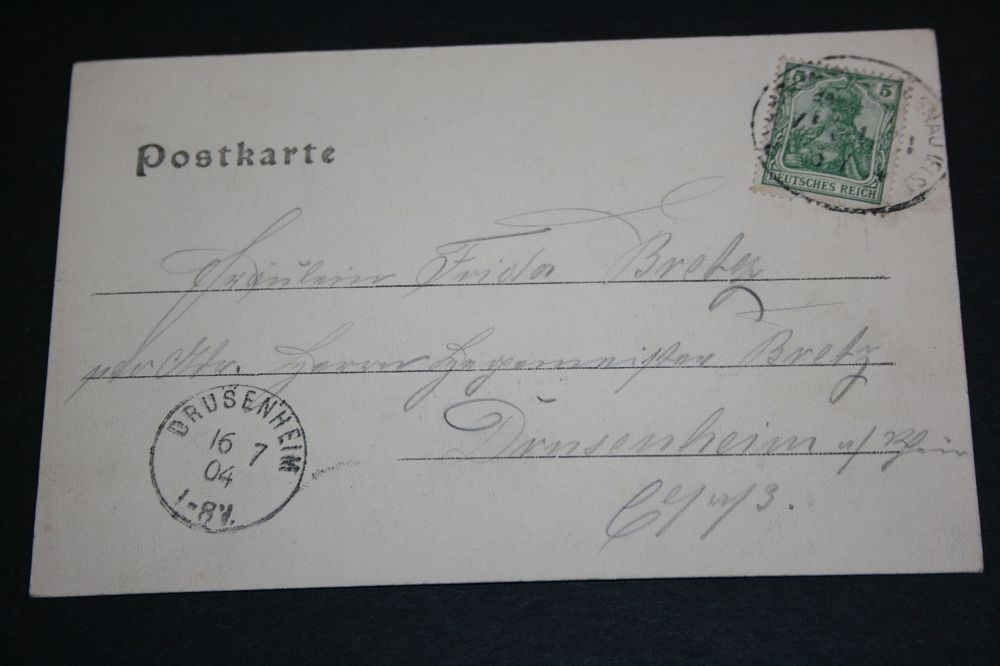 Postkarte
5 5
DEUTSCHES REICH
Fräulein Frida Bretz
per Adr. Herrn Hegemeister Bretz
Drusenheim a/Rhein
DRUSENHEIM
16 7
04
1-8V.